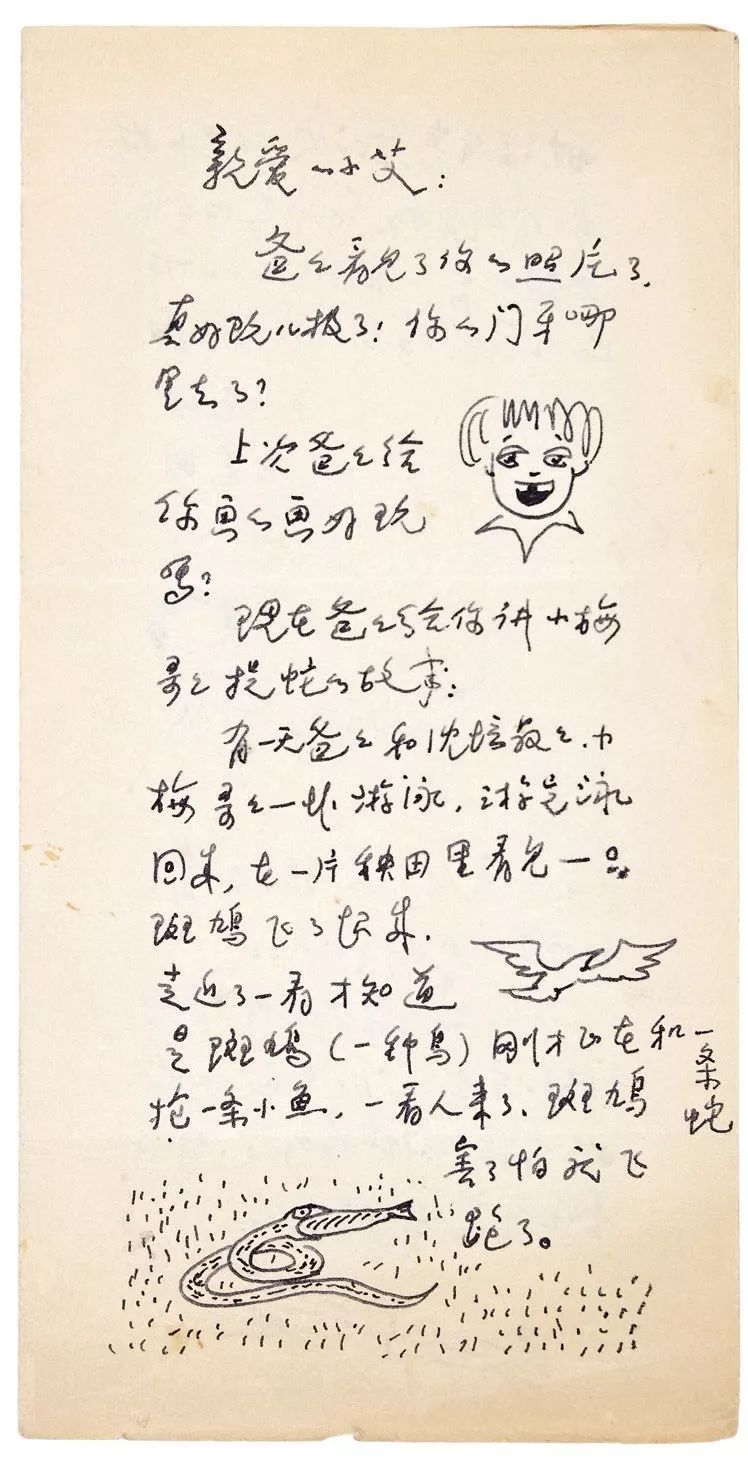 亲爱的小艾：
爸爸看见了你的照片了，
真好玩儿极了！你的门牙哪
里去了？
上次爸爸给
你画的画好玩
吗？
现在爸爸给你讲小梅
哥哥捉蛇的故事：
有一天爸爸和沈培叔叔、小
梅哥哥一北游泳，游完泳
回来，在一片秧田里看见一只
斑鸠飞了起来，
走近了一看才知道
是斑鸠（一种鸟）刚才正在和一条蛇
抢一条小鱼，一看人来了，斑鸠
害了怕就飞
跑了。